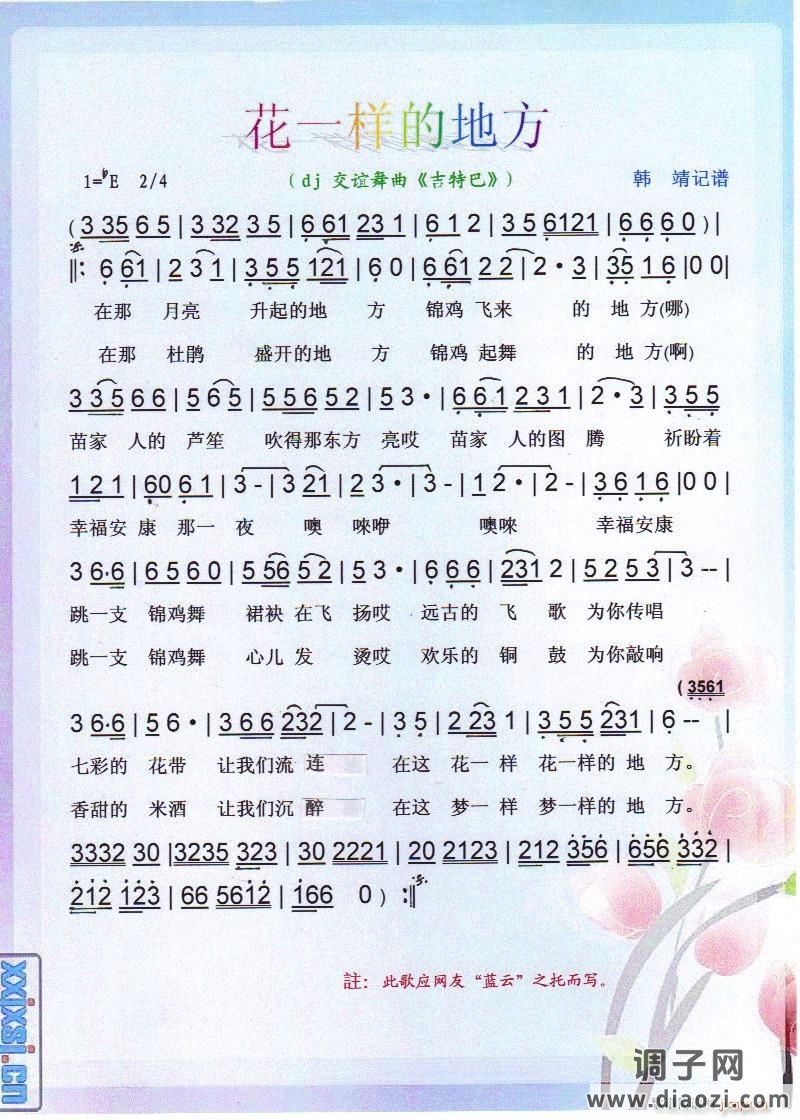 花一样的地方
1=♭E 2/4 （dj 交谊舞曲《吉特巴》） 韩 靖记谱
( 3 35 6 5 | 3 32 3 5 | 6 61 23 1 | 6 1 2 | 3 5 6121 | 6 6 6 0 ) |
‖: 6 61 | 2 3 1 | 3 5 5 121 | 6 0 | 6 61 2 2 | 2 · 3 | 35 1 6 | 0 0 |
在那 月亮 升起的地 方 锦鸡 飞来 的 地 方(哪)
在那 杜鹃 盛开的地 方 锦鸡 起舞 的 地 方(啊)
3 3 5 6 6 | 5 6 5 | 5 5 6 5 2 | 5 3 · | 6 6 1 2 3 1 | 2 · 3 | 3 5 5
苗家 人的 芦笙 吹得那东方 亮哎 苗家 人的图 腾 祈盼着
1 2 1 | 60 6 1 | 3 - | 3 21 | 2 3 · | 3 - | 1 2 · | 2 - | 3 6 1 6 | 0 0 |
幸福安 康 那一 夜 噢 唻咿 噢唻 幸福安康
3 6·6 | 6 5 6 0 | 5 56 5 2 | 5 3 · | 6 6 6 | 231 2 | 5 2 5 3 | 3 -- |
跳一支 锦鸡舞 裙袂 在飞 扬哎 远古的 飞 歌 为你传唱
跳一支 锦鸡舞 心儿 发 烫哎 欢乐的 铜 鼓 为你敲响
( 3561
3 6·6 | 5 6 · | 3 6 6 232 | 2 - | 3 5 | 2 23 1 | 3 5 5 231 | 6 -- |
七彩的 花带 让我们流 连 在这 花一 样 花一样的 地 方。
香甜的 米酒 让我们沉 醉 在这 梦一 样 梦一样的 地 方。
3332 30 | 3235 323 | 30 2221 | 20 2123 | 212 356 | 656 332 |
212 123 | 66 5612 | 166 0 ) :‖
註：此歌应网友“蓝云”之托而写。
xxjxsj.cn
调子网
www.diaozi.com